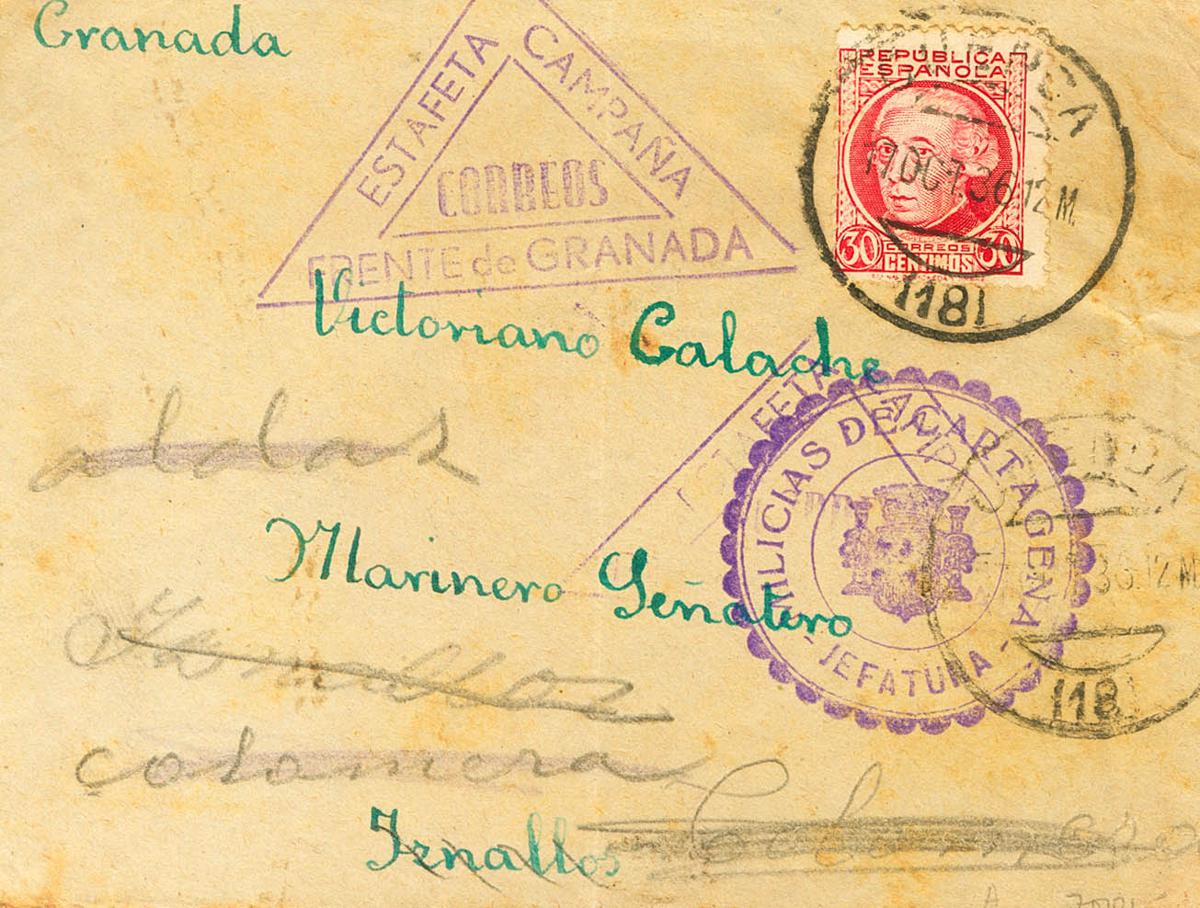 Granada
ESTAFETA CAMPAÑA
CORREOS
FRENTE de GRANADA
REPÚBLICA
ESPAÑOLA
17.OCT.36.12 M
30 CORREOS 30
CENTIMOS
1181
Victoriano Calache
ESTAFETA
MILICIAS DE CARTAGENA
- JEFATURA -
36.12 M
118
Marinero Señalero
Iznalloz
colomera
Iznallos